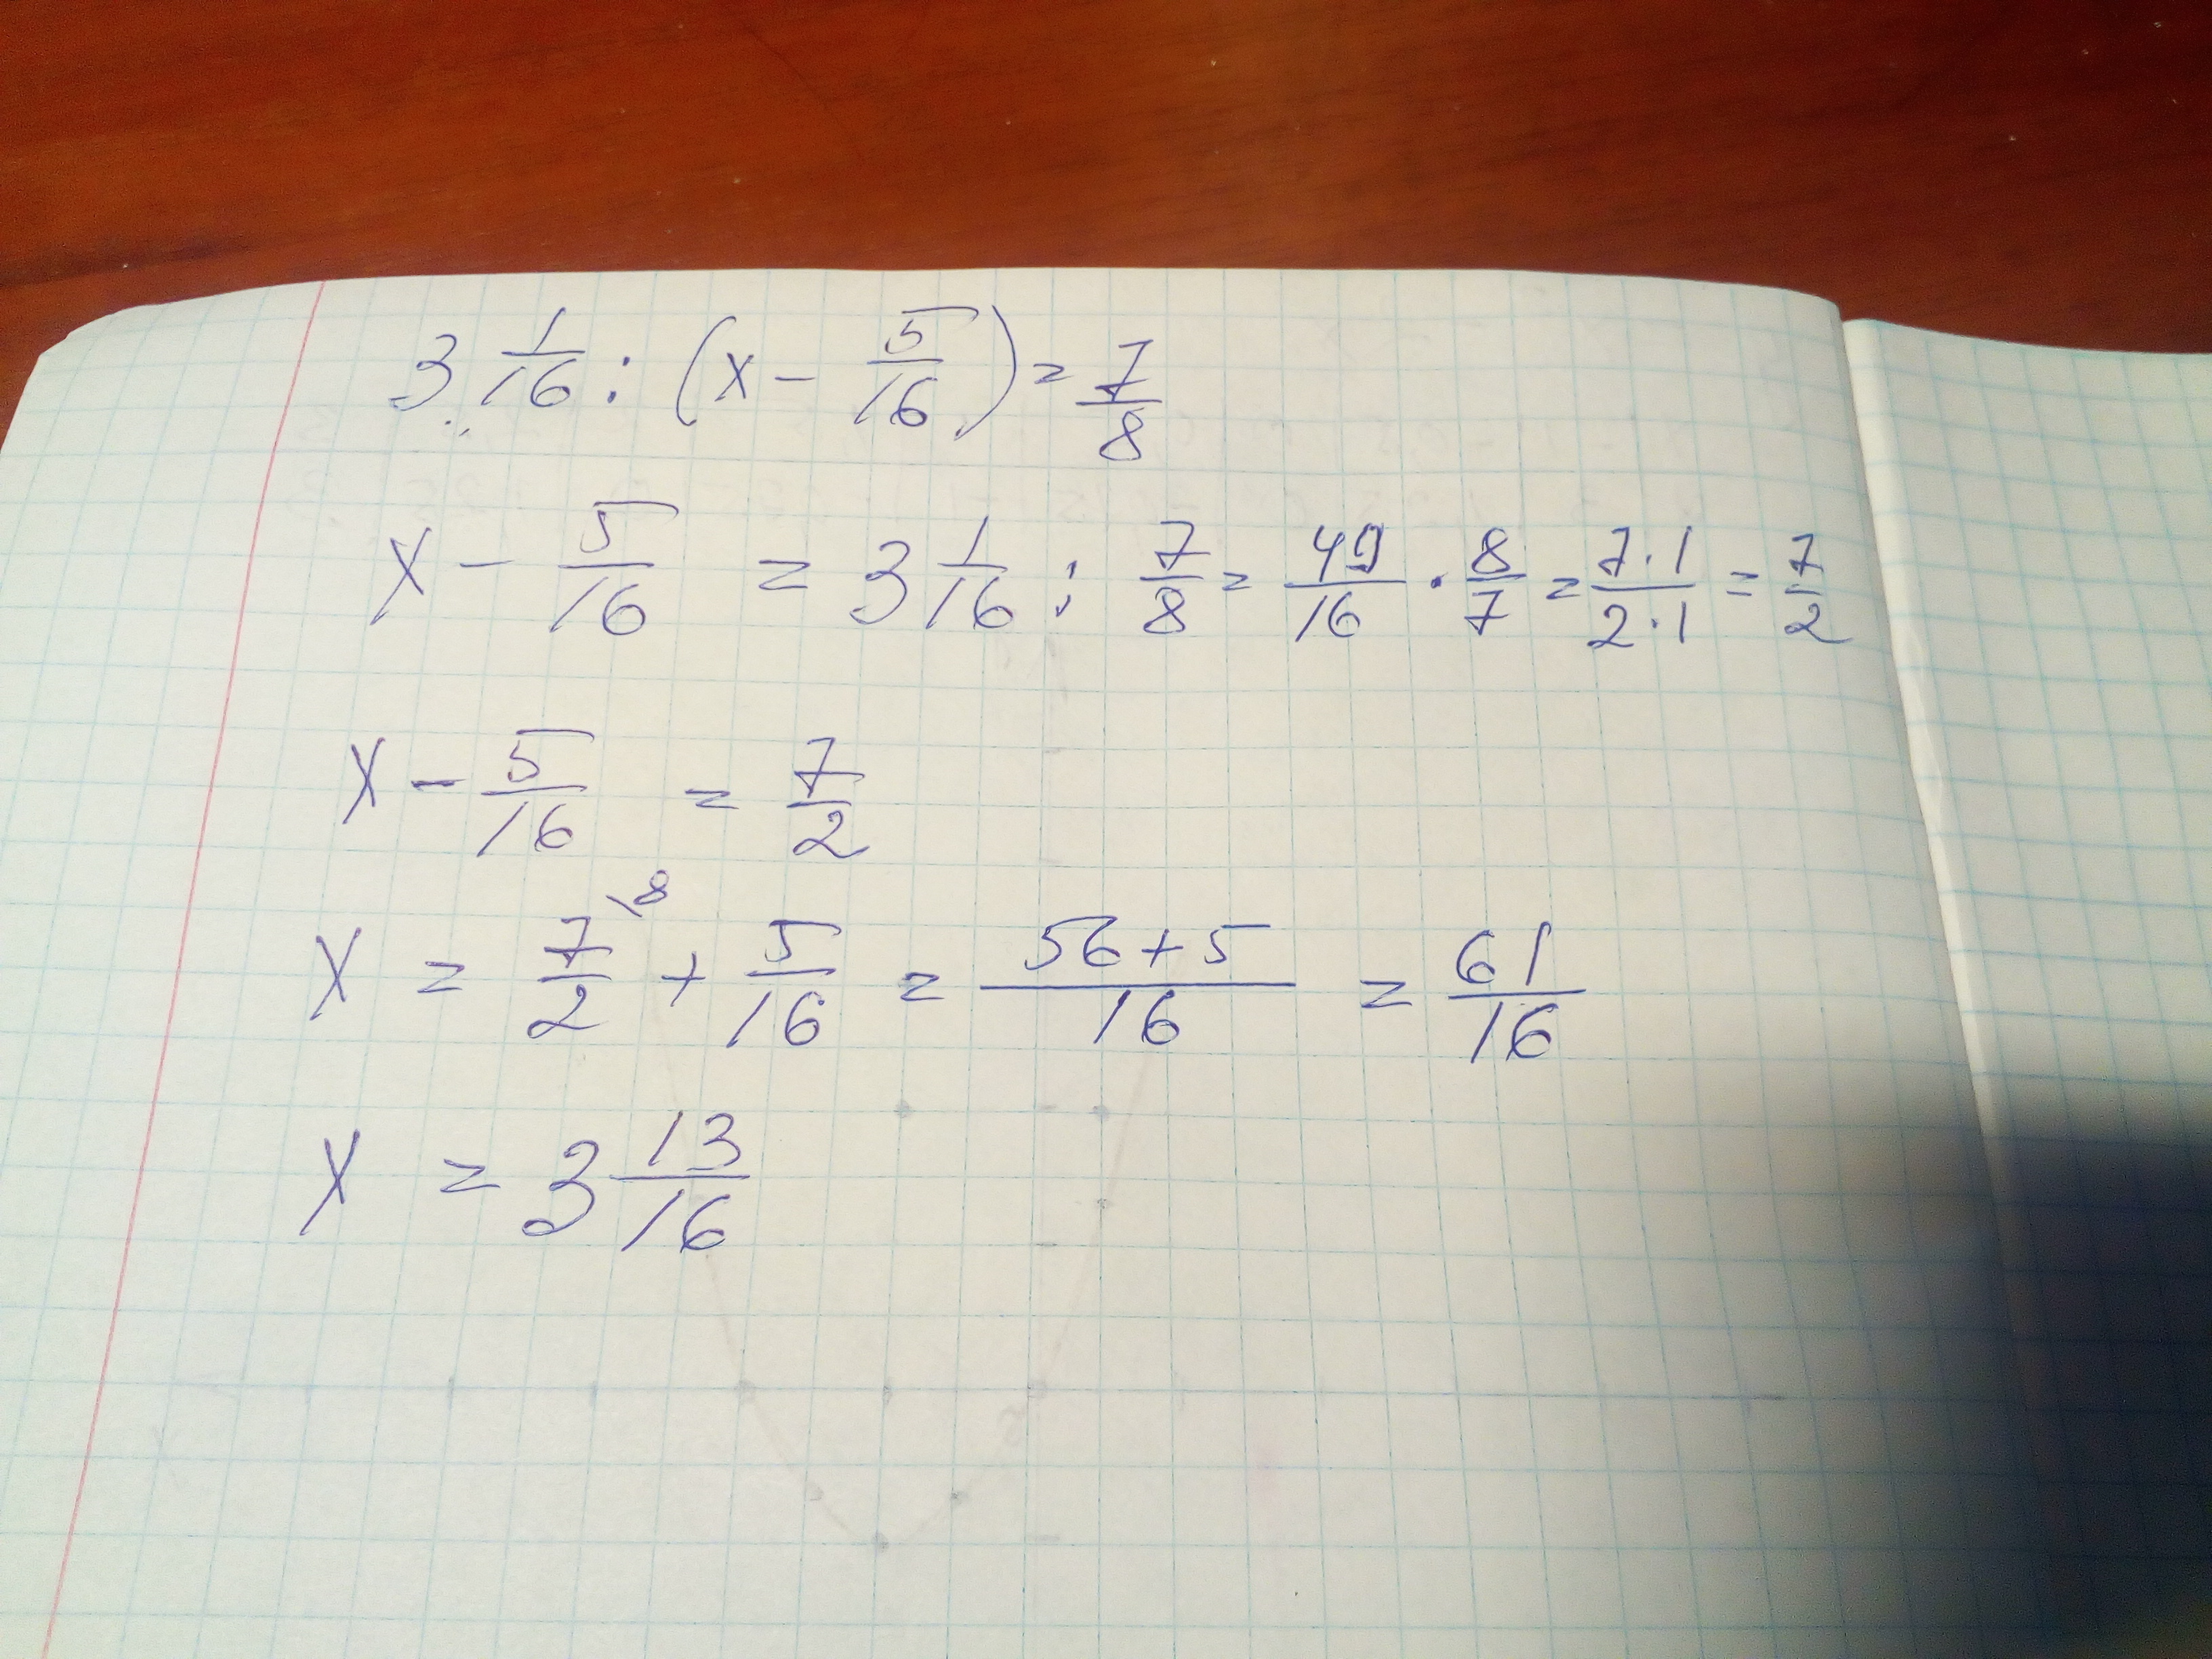 3 1/16 : (x - 5/16) = 7/8
x - 5/16 = 3 1/16 : 7/8 = 49/16 · 8/7 = 7·1/2·1 = 7/2
x - 5/16 = 7/2
x = 7/2 \8 + 5/16 = 56+5/16 = 61/16
x = 3 13/16